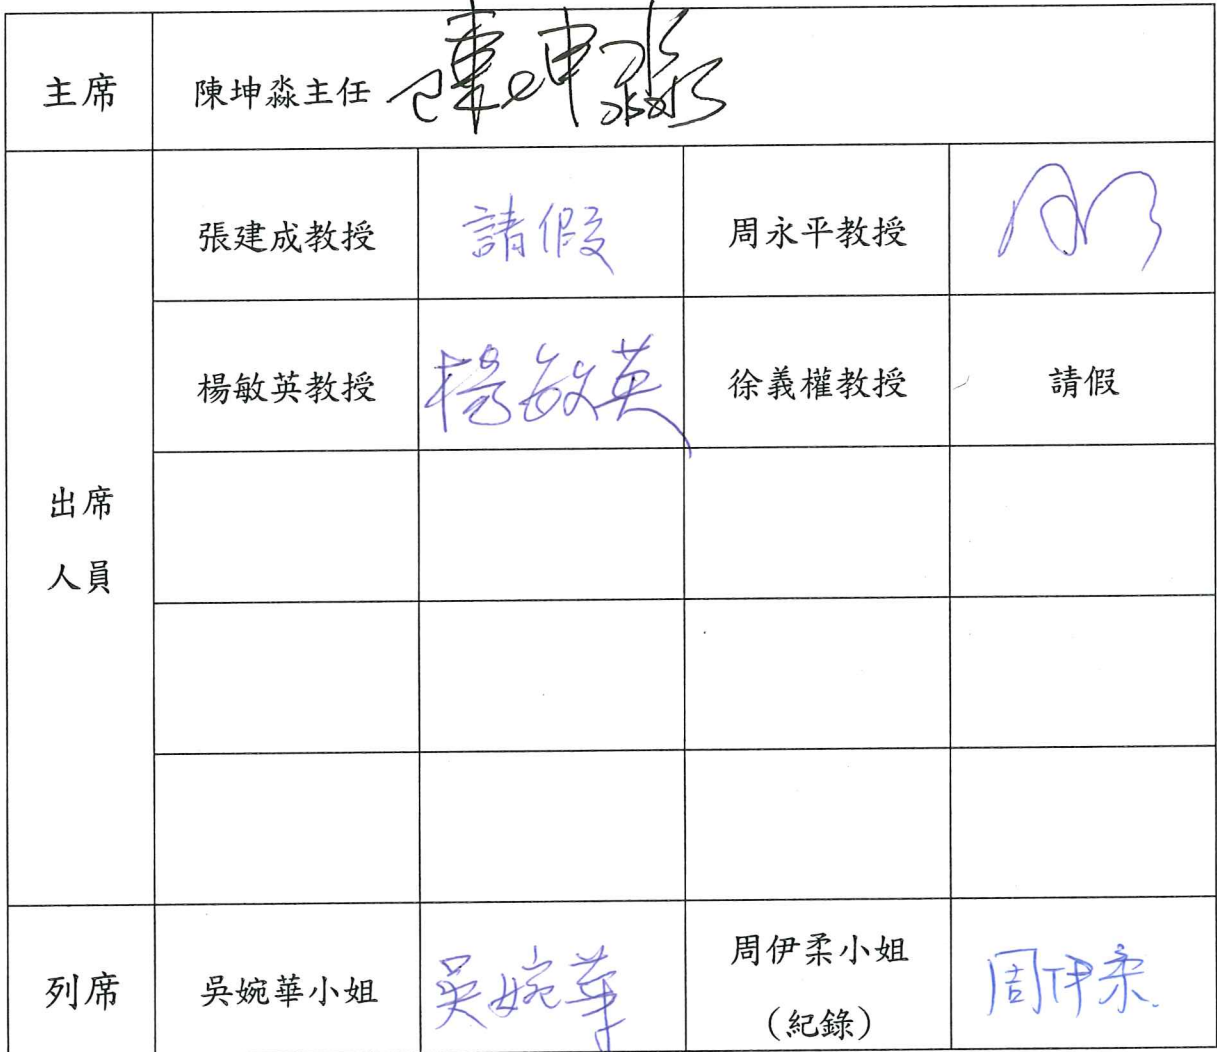 主席
陳坤淼主任 陳坤淼
張建成教授 請假 周永平教授
楊敏英教授 楊敏英 徐義權教授 請假
出席
人員
列席
吳婉華小姐 吳婉華 周伊柔小姐
(紀錄)
周伊柔